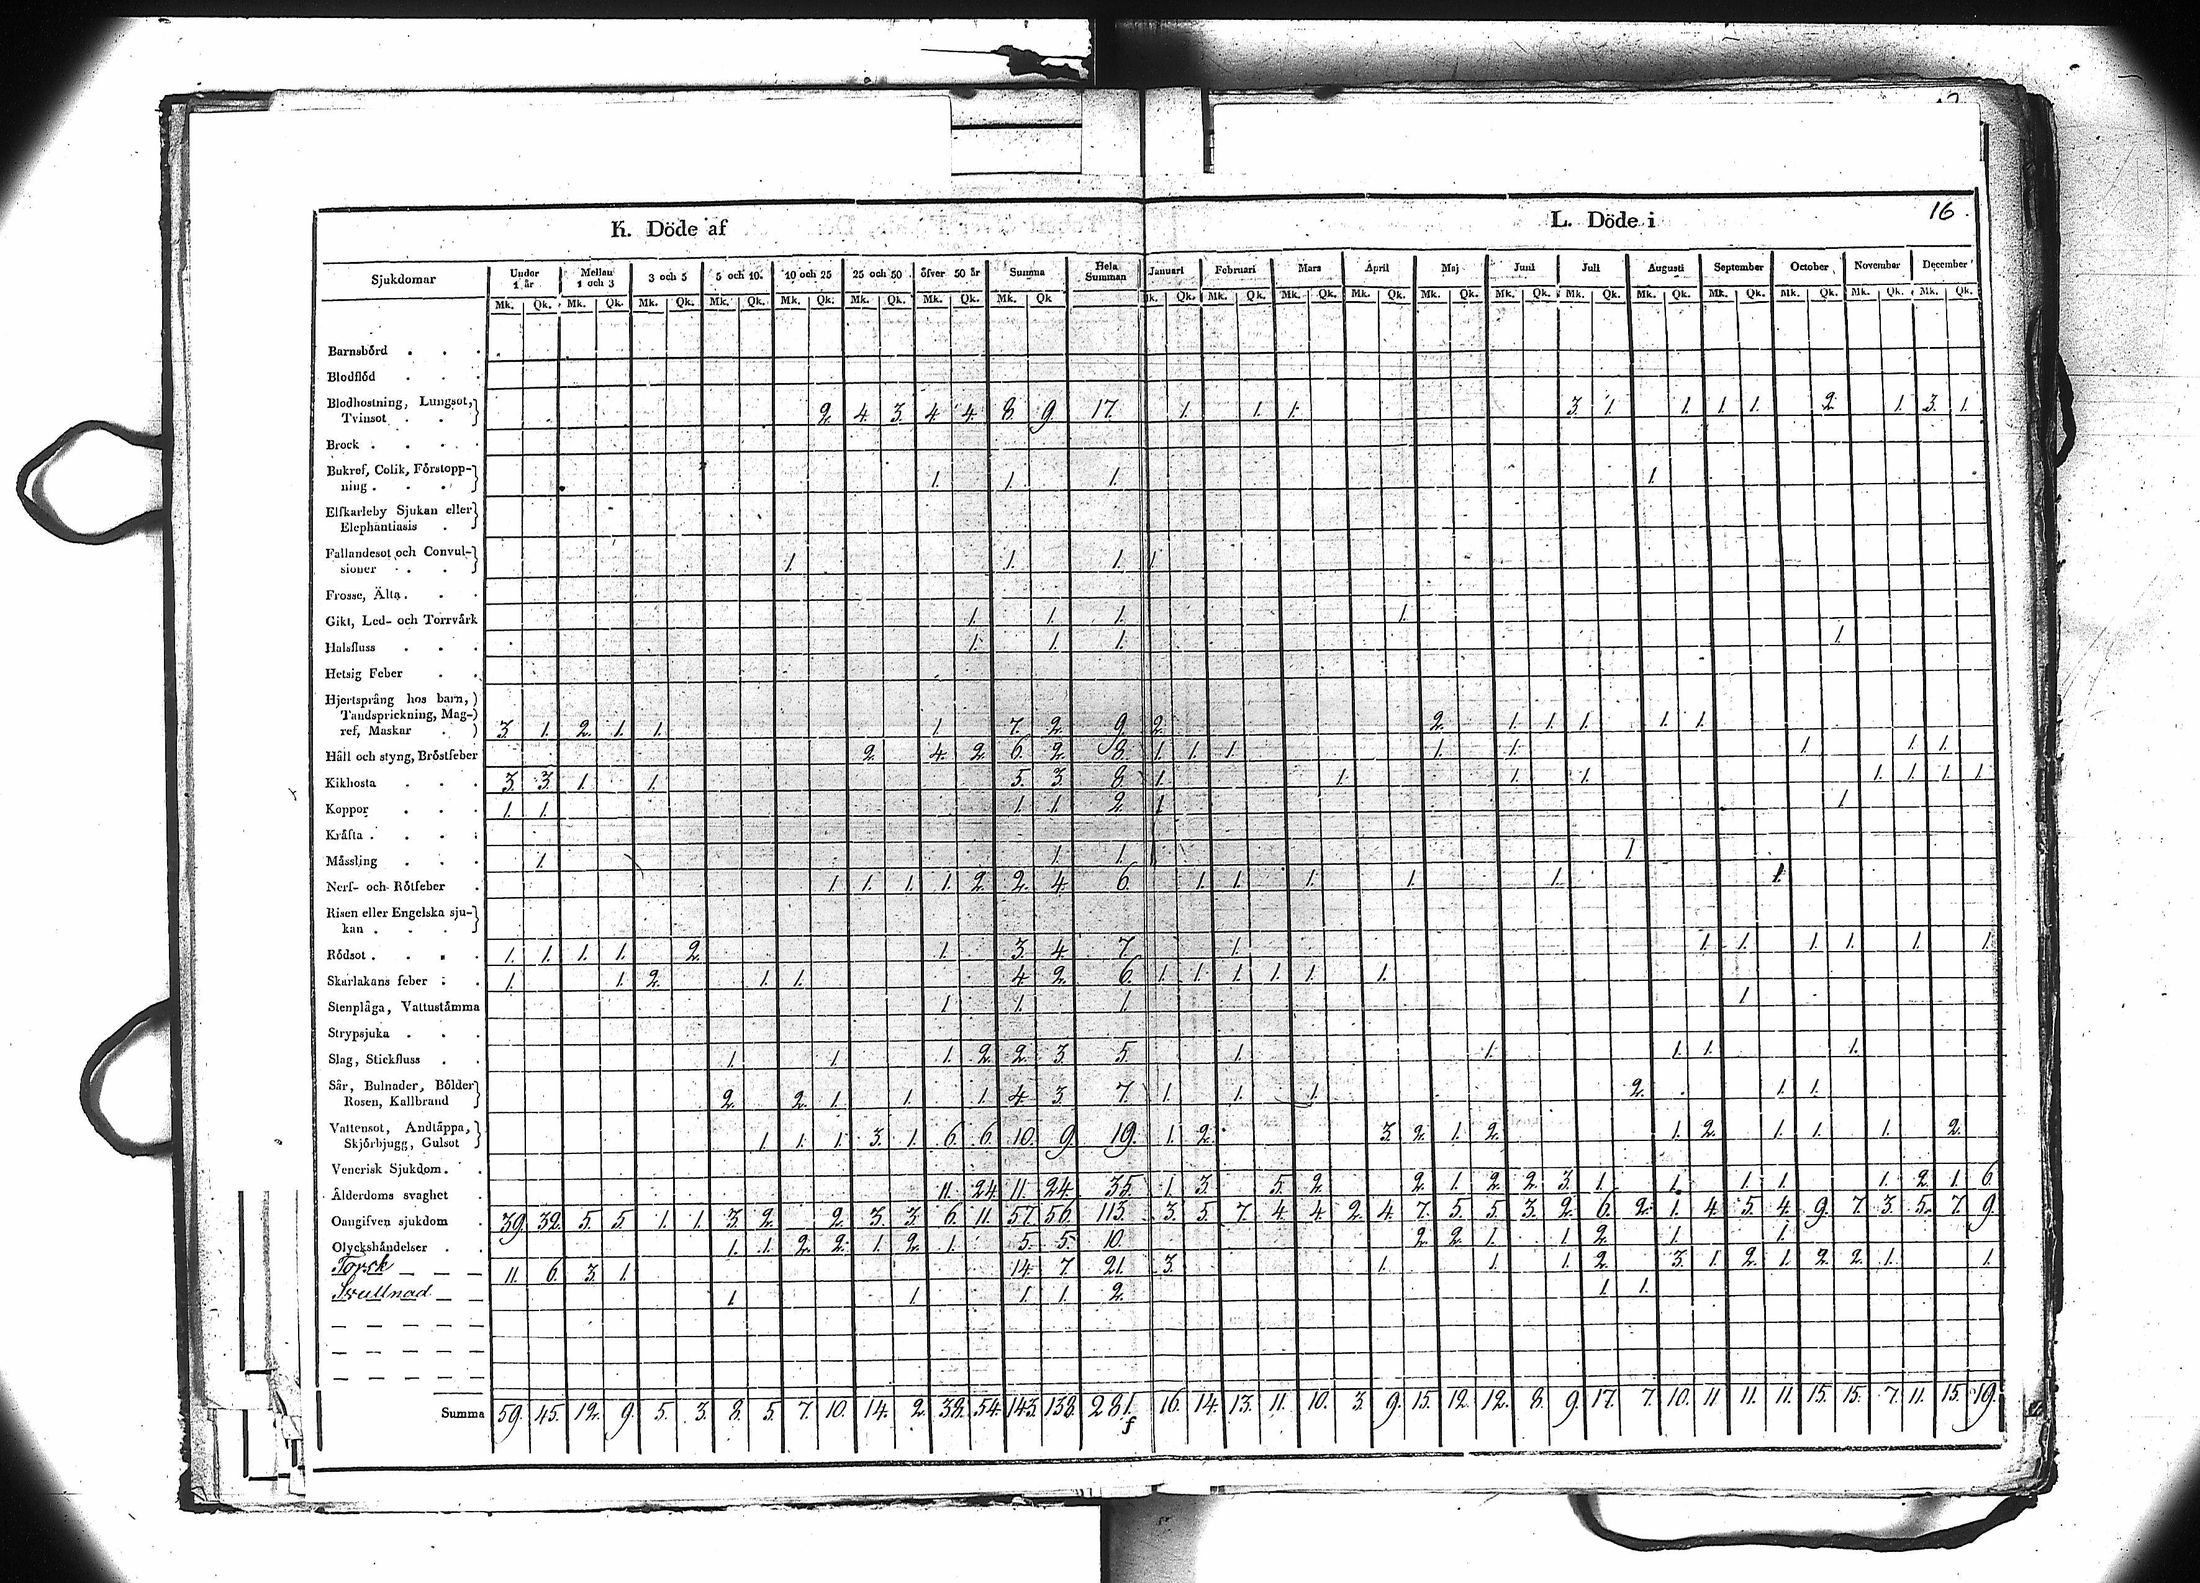 16.
K. Döde af L. Döde i
Sjukdomar Under 1 år Mellan 1 och 3 3 och 5 5 och 10. 10 och 25 25 och 50 öfver 50 år Summa Hela Summan Januari Februari Mars April Maj Juni Juli Augusti September October November December
Mk. Qk. Mk. Qk. Mk. Qk. Mk. Qk. Mk. Qk. Mk. Qk. Mk. Qk. Mk. Qk Mk. Qk. Mk. Qk. Mk. Qk. Mk. Qk. Mk. Qk. Mk. Qk. Mk. Qk. Mk. Qk. Mk. Qk. Mk. Qk. Mk. Qk. Mk. Qk.
Barnsbörd . . .
Blodflöd . . .
Blodhostning, Lungsot,
Tvinsot . . 2. 4. 3. 4. 4. 8. 9. 17. 1. 1. 1. 3. 1. 1. 1. 1. 2. 1. 3. 1.
Brock . . . .
Bukref, Colik, Förstopp-
ning . . . 1. 1. 1. 1.
Elfkarleby Sjukan eller
Elephantiasis .
Fallandesot och Convul-
sioner . . 1. 1. 1. 1
Frosse, Älta . . .
Gikt, Led- och Torrvärk 1. 1. 1. 1.
Halsfluss . . . 1. 1. 1. 1.
Hetsig Feber . .
Hjertsprång hos barn,
Tandsprickning, Mag-
ref, Maskar . 3. 1. 2. 1. 1. 1. 7. 2. 9. 2. 2. 1. 1. 1. 1. 1.
Håll och styng, Bröstfeber 2. 4. 2. 6. 2. 8. 1. 1. 1. 1. 1. 1. 1. 1.
Kikhosta . . . 3. 3. 1. 1. 5. 3. 8. 1. 1. 1. 1. 1. 1. 1. 1.
Koppor . . . 1. 1. 1. 1. 2. 1 1
Kräfta . . . .
Mässling . . . 1. 1. 1. 1.
Nerf- och Rötfeber . 1. 1. 1. 1. 2. 2. 4. 6. 1. 1. 1. 1. 1. 1.
Risen eller Engelska sju-
kan . . .
Rödsot . . . . 1. 1. 1. 1. 2. 1. 3. 4. 7. 1. 1. 1. 1. 1. 1. 1.
Skarlakans feber . . 1. 1. 2. 1. 1. 4. 2. 6. 1. 1. 1. 1. 1. 1.
Stenplåga, Vattustämma 1. 1. 1. 1
Strypsjuka . . .
Slag, Stickfluss . . 1. 1. 1. 2. 2. 3. 5. 1. 1. 1. 1. 1.
Sår, Bulnader, Bölder
Rosen, Kallbrand 2. 2. 1. 1. 1. 4. 3. 7. 1. 1. 1. 2. 1. 1.
Vattensot, Andtäppa,
Skjörbjugg, Gulsot 1. 1. 1. 3. 1. 6. 6. 10. 9. 19. 1. 2. 3. 2. 1. 2. 1. 2. 1. 1. 1. 2.
Venerisk Sjukdom . .
Ålderdoms svaghet . 11. 24. 11. 24. 35. 1. 3. 5. 2. 2. 1. 2. 2. 3. 1. 1. 1. 1. 1. 2. 1. 6.
Oangifven sjukdom . 39. 32. 5. 5. 1. 1. 3. 2. 2. 3. 3. 6. 11. 57. 56. 113. 3. 5. 7. 4. 4. 2. 4. 7. 5. 5. 3. 2. 6. 2. 1. 4. 5. 4. 9. 7. 3. 5. 7. 9.
Olyckshändelser . . 1. 1. 2. 2. 1. 2. 1. 5. 5. 10. 2. 2. 1. 1. 2. 1. 1.
Torsk 11. 6. 3. 1. 14. 7. 21. 3. 1. 1. 1. 2. 3. 1. 2. 1. 2. 2. 1. 1.
Svullnad 1. 1. 1. 1. 2. 1. 1.
Summa 59. 45. 12. 9. 5. 3. 8. 5. 7. 10. 14. 2. 38. 54. 143. 138. 281. 16. 14. 13. 11. 10. 3. 9. 15. 12. 12. 8. 9. 17. 7. 10. 11 11. 11. 15. 15. 7. 11. 15. 19.